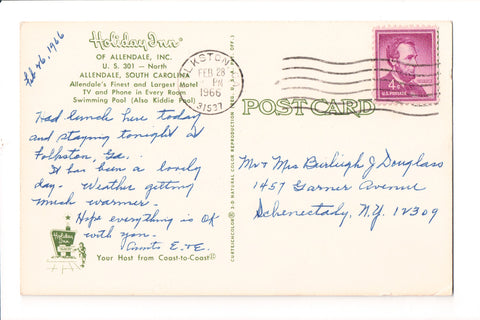 Feb 26, 1966
Holiday Inn®
OF ALLENDALE, INC.
U. S. 301 — North
ALLENDALE, SOUTH CAROLINA
Allendale's Finest and Largest Motel
TV and Phone in Every Room
Swimming Pool (Also Kiddie Pool)
Had lunch here today
and staying tonight at
Folkston, Ga.
It has been a lovely
day. Weather getting
much warmer.
Hope everything is OK
with you.
Aunts E. & E.
Holiday Inn
Your Host from Coast-to-Coast®
3-D NATURAL COLOR REPRODUCTION
FOLKSTON
FEB 28
PM
1966
31537
POST CARD
4¢
U.S. POSTAGE
Mr & Mrs Burleigh J Douglass
1457 Garner Avenue
Schenectady, N.Y. 12309